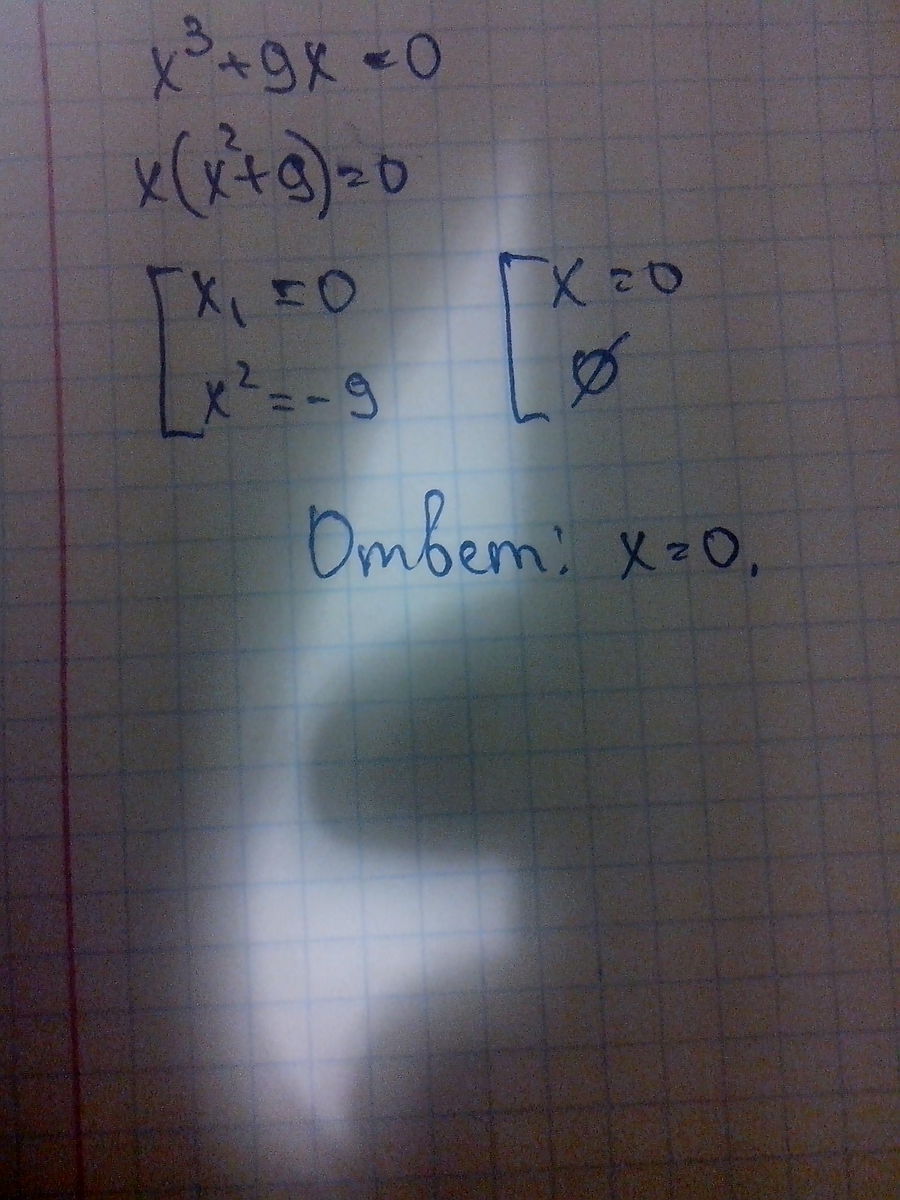 x³+9x=0
x(x²+9)=0
[x₁=0 [x=0
x²=-9 ∅
Ответ: x=0.